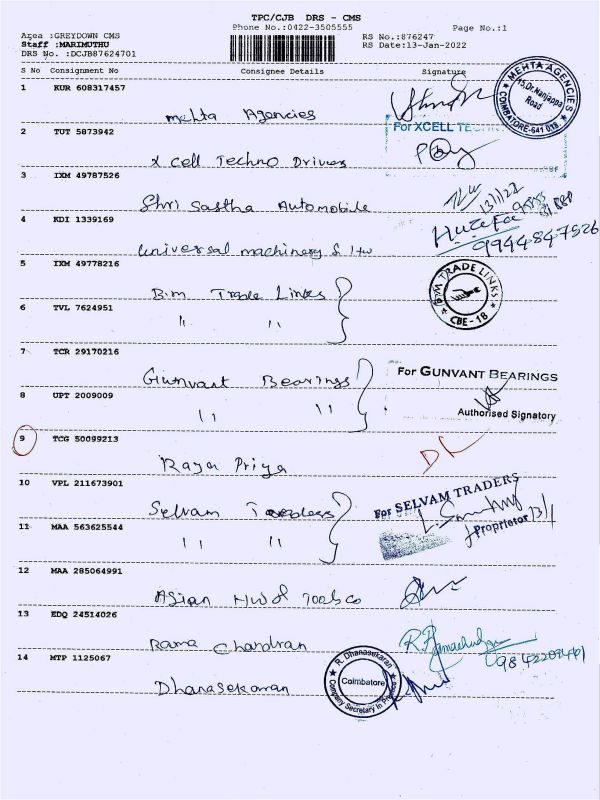 TPC/CJB DRS - CMS
Phone No.:0422-3505555
Page No.:1
Area :GREYDOWN CMS
RS No.:876247
Staff :MARIMUTHU
RS Date:13-Jan-2022
DRS No. :DCJB87624701
S No Consignment No Consignee Details Signature
1 KUR 608317457
Mehta Agencies
MEHTA AGENCIES
15, Dr. Nanjappa Road
COIMBATORE-641 018
2 TUT 5873942
For XCELL TECHN
X Cell Techno Drives
3 IXM 49787526
Shri Sastha Automobile
13/1/22
4 KDI 1339169
Huzefa
9944847526
Universal machinery & Hw
5 IXM 49778216
B.m Trade Links
TRADE LINKS
CBE - 18
6 TVL 7624951
" "
7 TCR 29170216
Gunvant Bearings
For GUNVANT BEARINGS
8 UPT 2009009
" "
Authorised Signatory
9 TCG 50099213
Raja Priya
10 VPL 211673901
Selvam
For SELVAM TRADERS
Proprietor
13/1
11 MAA 563625544
" "
12 MAA 285064991
Asian Hwd Tools Co
13 EDQ 24514026
Rama Chandran
14 MTP 1125067
Dhanasekaran
R. Dhanasekaran
Coimbatore
Company Secretary In Practice